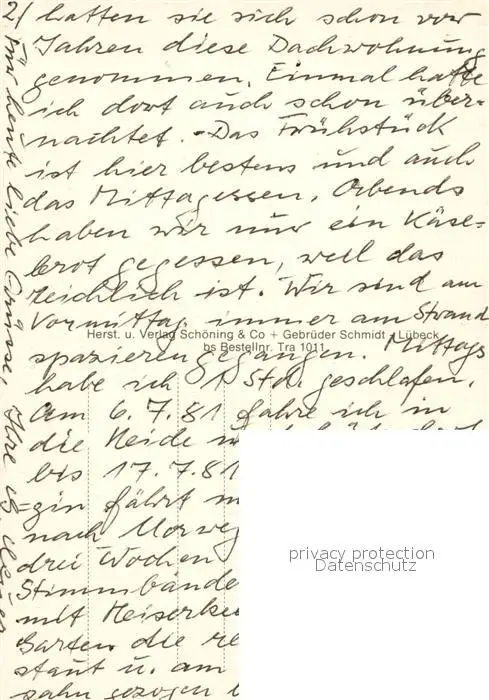 2/ hatten sie sich schon vor
Jahren diese Dachwohnung
genommen. Einmal hatte
ich dort auch schon über-
nachtet. - Das Frühstück
ist hier bestens und auch
das Mittagessen. Abends
haben wir nur ein Käse-
brot gegessen, weil das
reichlich ist. Wir sind am
Vormittag immer am Strand
Herst. u. Verlag Schöning & Co + Gebrüder Schmidt, Lübeck
bs Bestellnr. Tra 1011
spazieren gegangen. Mittags
habe ich 1 Std. geschlafen.
Am 6.7.81 fahre ich in
die Heide
bis 17.7.81
gin fährt
nach Norweg
drei Wochen
Stimmbände
mit Heiserke
Garten die
staut u. am
zahn gezogen
Für heute liebe Grüsse, Ihre
privacy protection
Datenschutz